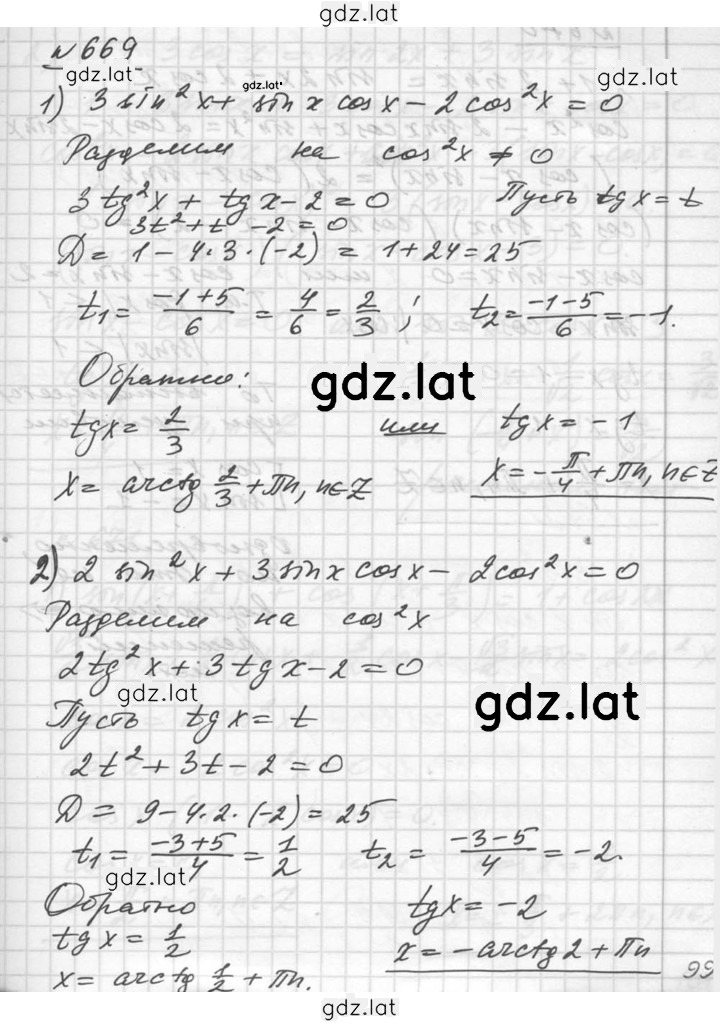 gdz.lat
№669
gdz.lat
gdz.lat
1) 3 sin²x + sin x cos x - 2 cos²x = 0
Разделим на cos²x ≠ 0
3tg²x + tgx - 2 = 0 Пусть tgx = t
3t² + t - 2 = 0
D = 1 - 4·3·(-2) = 1 + 24 = 25
t₁ = (-1+5)/6 = 4/6 = 2/3 ; t₂ = (-1-5)/6 = -1.
Обратно: gdz.lat
tgx = 2/3 или tgx = -1
x = arctg 2/3 + πn, n∈Z x = -π/4 + πn, n∈Z
2) 2 sin²x + 3 sin x cos x - 2cos²x = 0
Разделим на cos²x
2tg²x + 3tgx - 2 = 0
gdz.lat
gdz.lat
Пусть tgx = t
2t² + 3t - 2 = 0
D = 9 - 4·2·(-2) = 25
t₁ = (-3+5)/4 = 1/2 t₂ = (-3-5)/4 = -2.
gdz.lat
Обратно tgx = -2
tgx = 1/2 x = -arctg2 + πn
x = arctg 1/2 + πn. 99
gdz.lat
gdz.lat